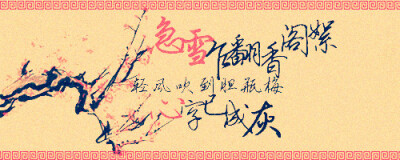 急雪乍翻香阁絮
轻风吹到胆瓶梅
心字已成灰